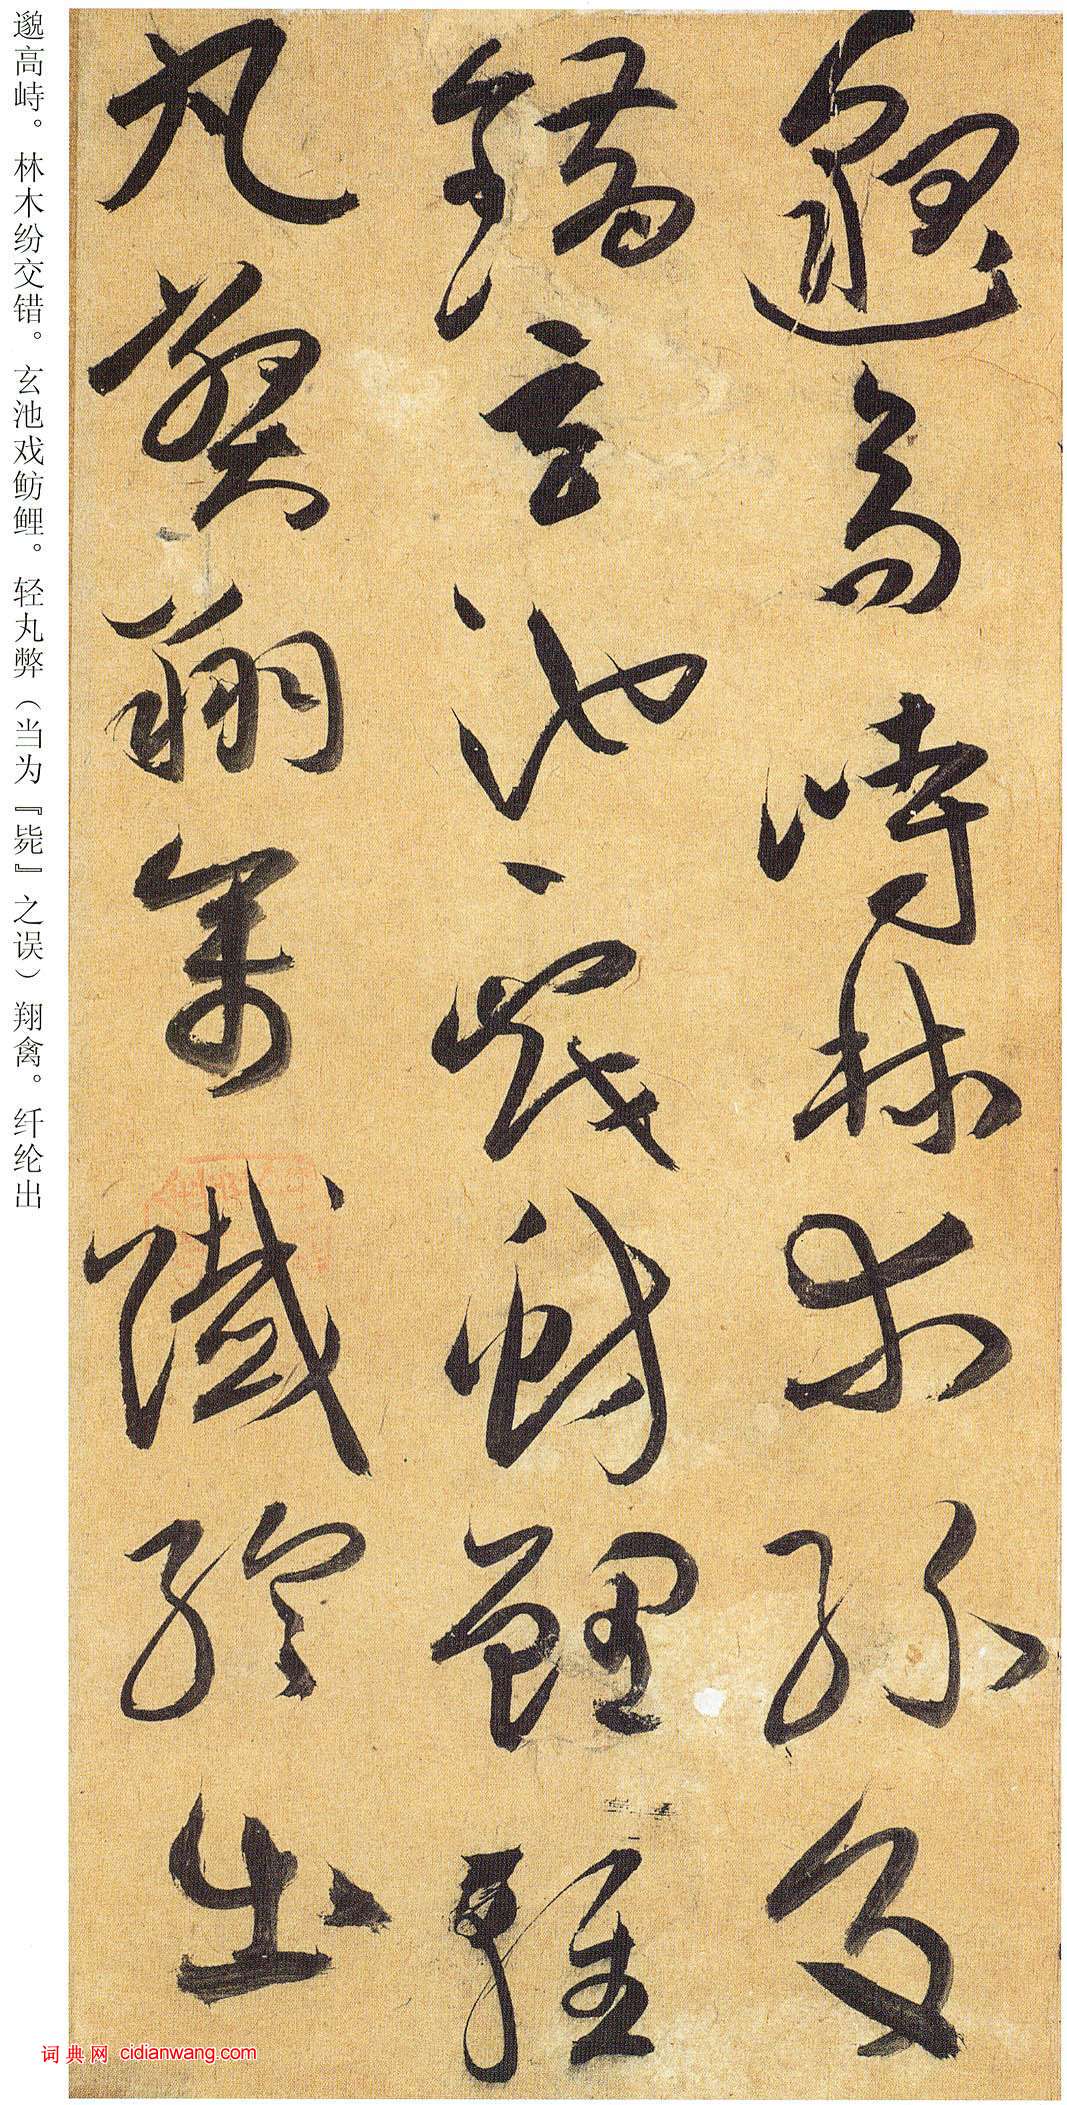 邈高峙林木紛交
錯玄池戲魴鯉輕
丸弊翔禽纖綸出
邈高峙。林木纷交错。玄池戏鲂鲤。轻丸弊（当为『毙』之误）翔禽。纤纶出
词典网 cidianwang.com